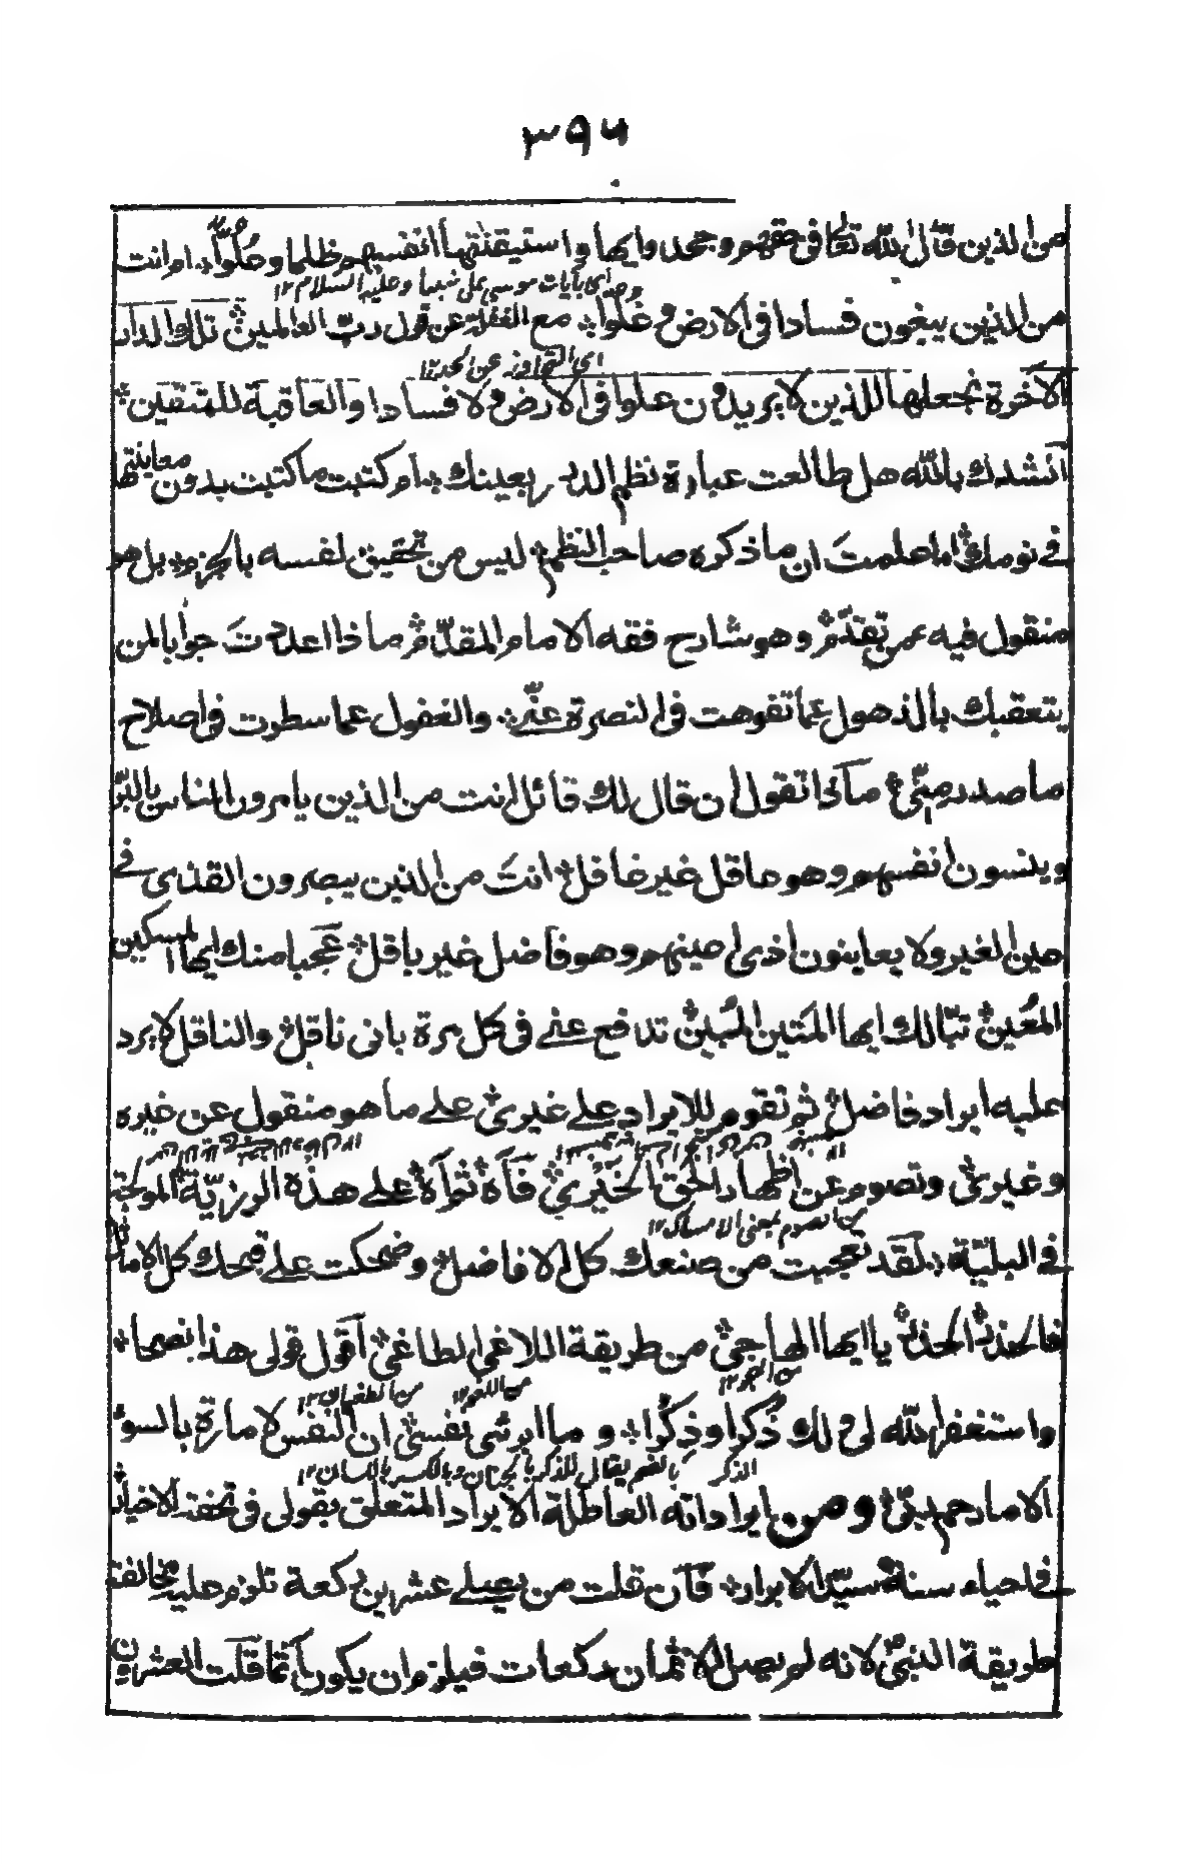 ٣٩٦
من الذين قال الله تعالى فى حقهم وجحدوا بها واستيقنتها انفسهم ظلما وعلوًّا ام انت
وجه اى بآيات موسى على نبينا وعليه السلام ١٢
من الذين يبغون فسادا فى الارض وعلوا مع الغفلة عن قول رب العالمين تلك الدار
اى التجاوز عن الحد ١٢
الآخرة نجعلها للذين لا يريدون علوا فى الارض ولا فسادا والعاقبة للمتقين
انشدك بالله هل طالعت عبارة نظم الدرر بعينك ام كتبت ما كتبت بدون معاينتها
فى نومك اما علمتَ ان ما ذكره صاحب النظم ليس من تحقيق نفسه بالجزم بل هو
منقول فيه عمن تقدم وهو شارح فقه الامام المقدم ماذا اعددتَ جوابا لمن
يتعقبك بالذهول عما تفوهت فى النصرة عنّى والغفول عما سطرت فى اصلاح
ما صدر منّى ماذا تقول ان قال لك قائل انت من الذين يامرون الناس بالبّر
وينسون انفسهم وهو عاقل غير غافل انتَ من الذين يبصرون القذى فى
عين الغير ولا يعاينون اذى اعينهم وهو فاضل غير باقل عجبا منك ايها المسكين
المُعين تبّا لك ايها المَتين المُبين تدفع عنى فى كل مرة بانى ناقل والناقل لا يرد
عليه ايراد فاضل ثم تقوم للايراد على غيرى على ما هو منقول عن غيره
وغيرى وتصوم عن اظهار الحق الخَيْرى فآه ثم آه على هذه الرزيّة الموقعة
من الصوم بمعنى الامساك ١٢
فى البليّة لقد تعجبت من صنعك كل الافاضل وضحكت على قبحك كل الاماثل
فالحذر الحذر يا ايها الهاجى من طريقة اللاغى الطاغى اقول قولى هذا نصحا
من الهجو ١٢ من اللغو ١٢ من الطغيان ١٢
واستغفر الله لى ولك ذُكرا وذِكرا وما ابرئ نفسى ان النفس لامارة بالسوء
الذكر بالضم يقال للذكر بالجنان وبالكسر باللسان ١٢
الا ما رحم ربّى ومن ايراداته العاطلة الايراد المتعلق بقولى فى تحفة الاخيار
فى احياء سنة سيّد الابرار فان قلت من يصلى عشرين ركعة تلزم عليه مخالفة
طريقة النبى لانه لم يصل الا ثمان ركعات فيلزم ان يكون آثما قلت العشرون